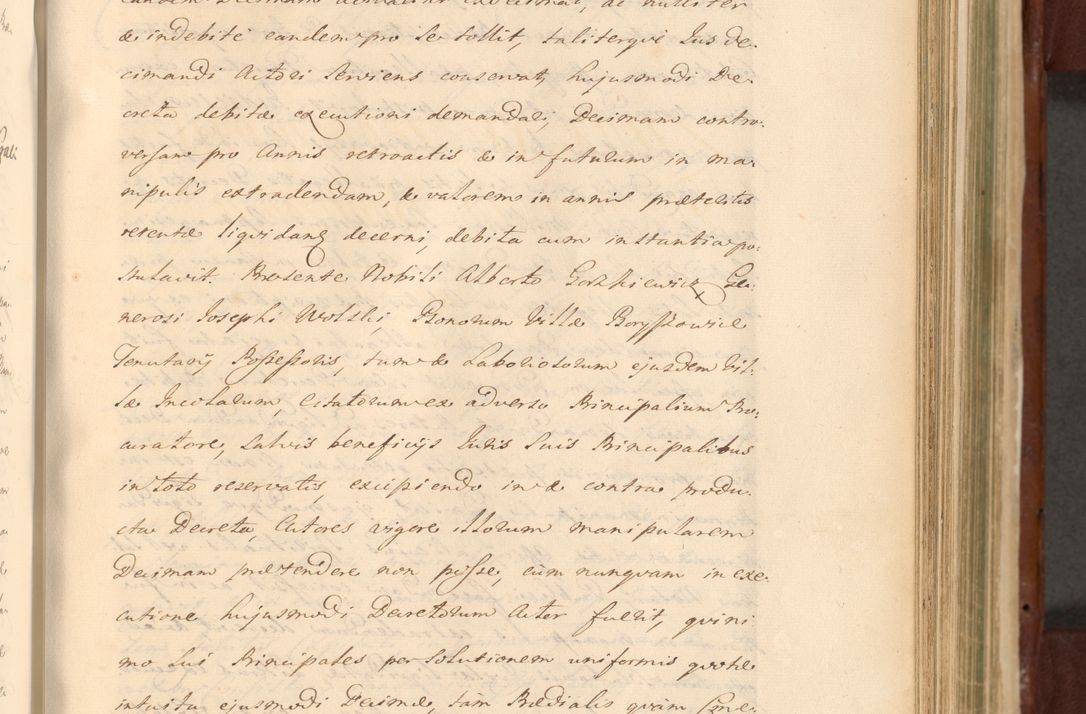 & indebite eandem pro se tollit, taliterqve Jus de-
cimandi Actori serviens conservat, hujusmodi De-
creta debitæ executioni demandari, Decimam contro-
versam pro Annis retroactis & in futurum in ma-
nipulis extradendam, & valorem in annis præteritis
retentæ liqvidandũ decerni, debita cum instantia po-
stulavit. Præsente Nobili Alberto Gorzkiewicz Ge-
nerosi Josephi Wolski, Bonorum Villæ Boryszowice
Tenutarij Possessoris, tum & Laboriosorum ejusdem Vil-
læ Incolarum, Citatorum ex adverso Principalium Pro-
curatore, salvis beneficijs Juris suis Principalibus
in toto reservatis, excipiendo in & contra produ-
cta Decreta, Actores vigore illorum manipularem
Decimam prætendere non posse, cum nunqvam in exe-
cutione hujusmodi Decretorum Actor fuerit, qvini-
mo sui Principales per solutionem uniformis qvotæ
intuitu ejusmodi Decimæ, tam Prædialis qvam Cme-